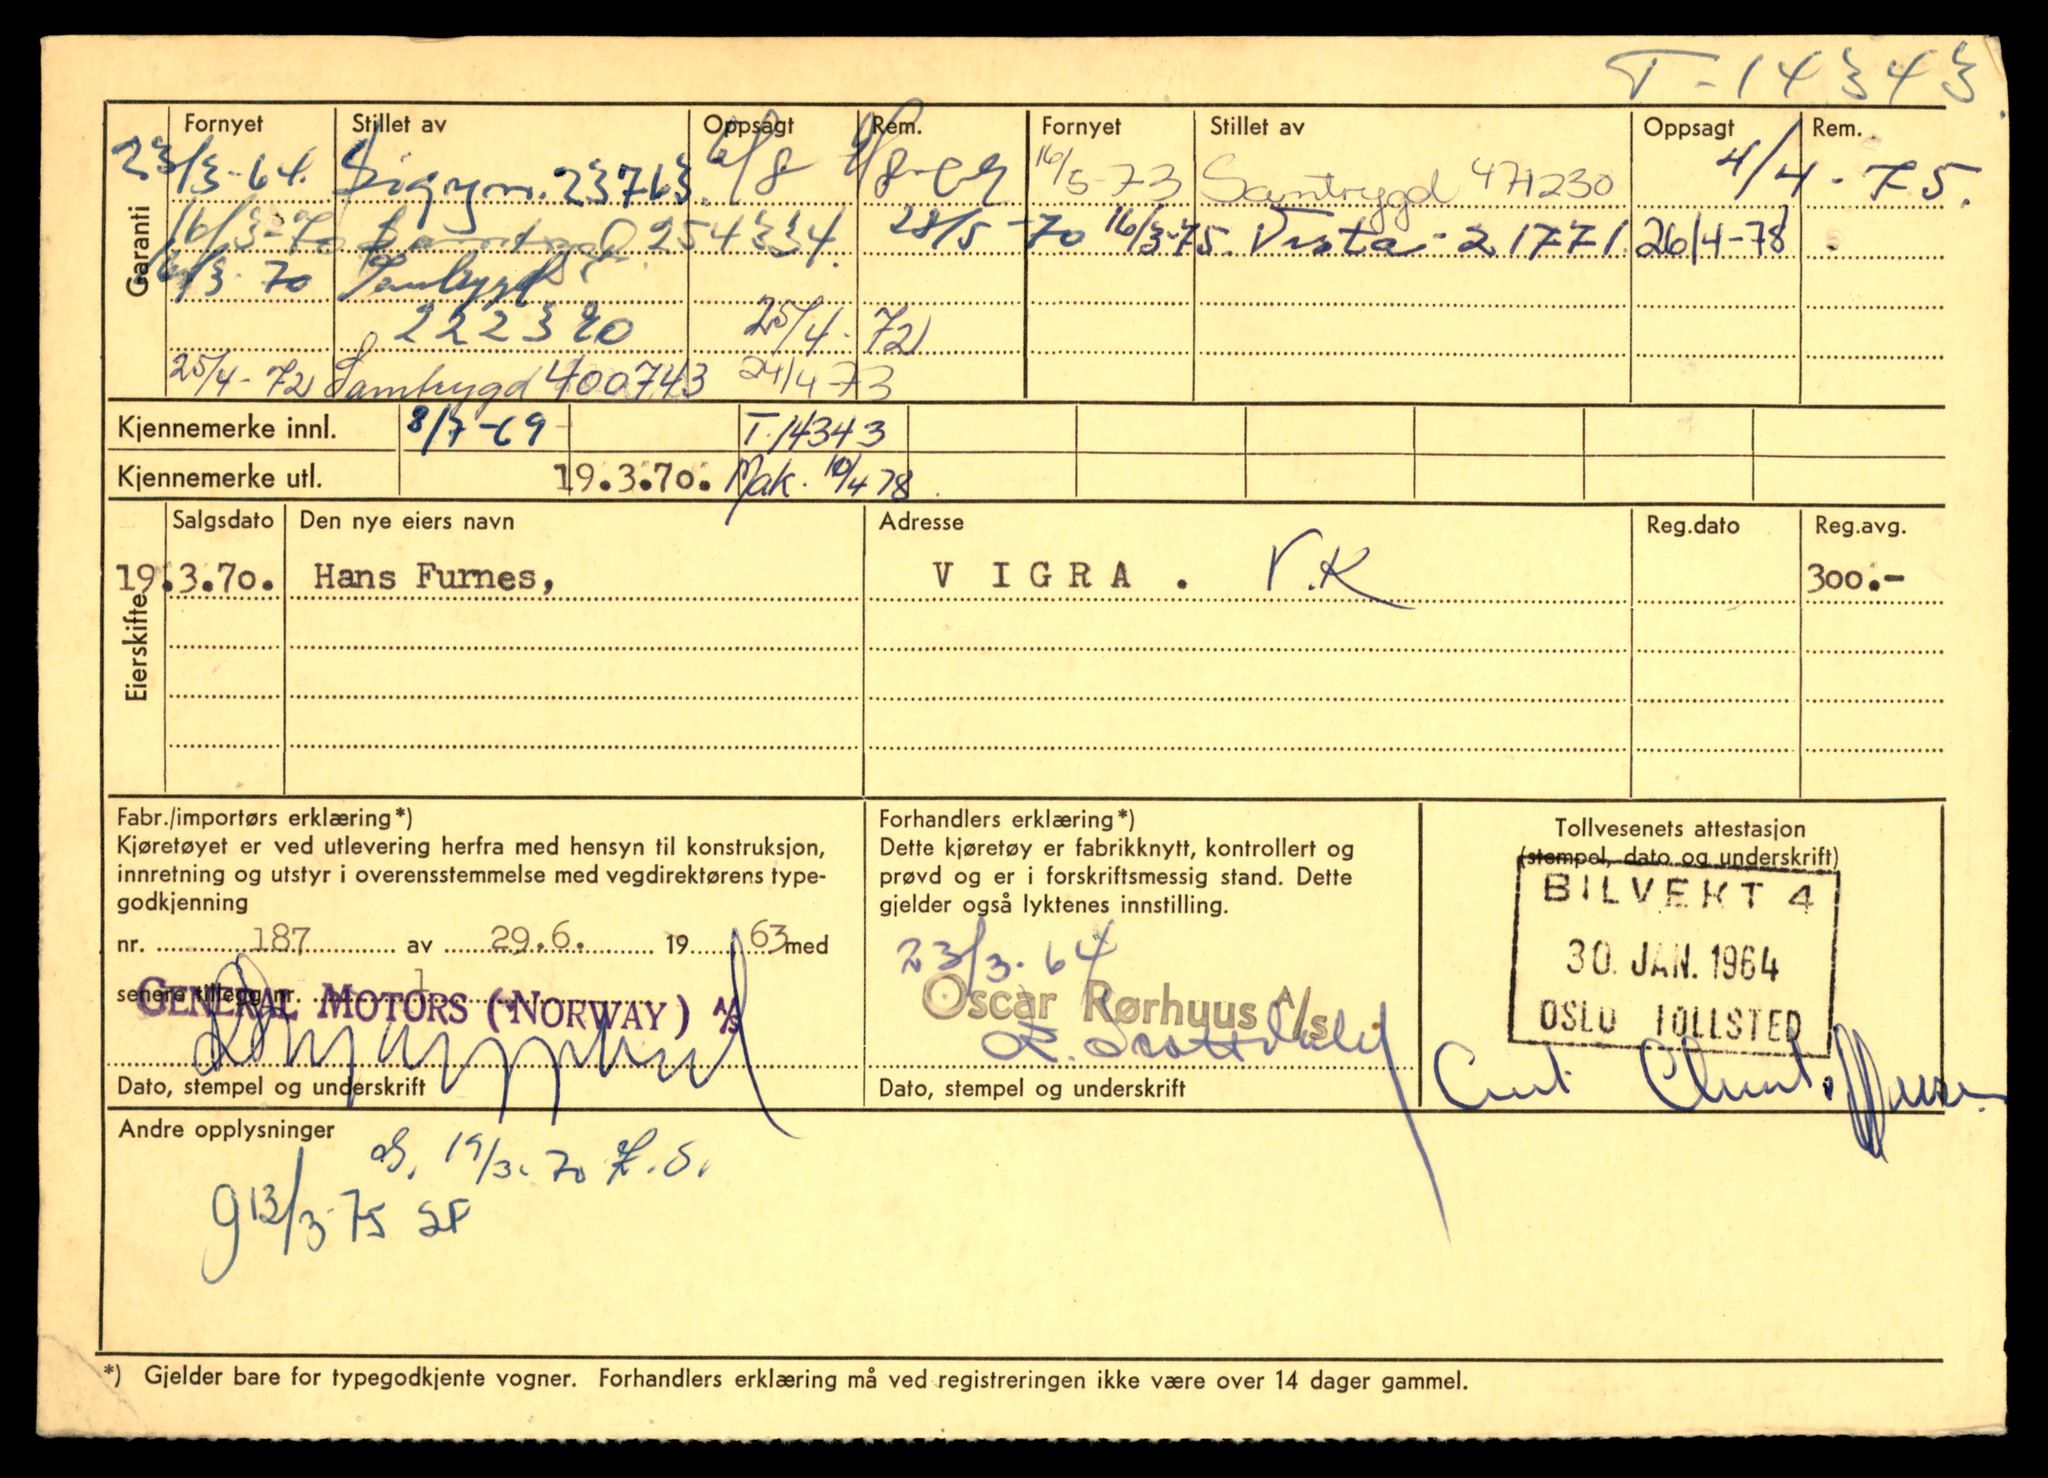 T-14343.
Fornyet Stillet av Oppsagt Rem. Fornyet Stillet av Oppsagt Rem.
Garanti
23/3-64. 23763. 16/5-73 Samtrygd 471230 4/4-75.
16/3-70 254334. 28/5-70 16/3-75. Vesta - 21771. 26/4-78
6/3-70 Samtrygd
222390 25/4-72
25/4-72 Samtrygd 400743 24/4-73
Kjennemerke innl. 8/7-69 T.14343
Kjennemerke utl. 19.3.70. Mak. 10/4 78.
Eierskifte
Salgsdato Den nye eiers navn Adresse Reg.dato Reg.avg.
19.3.70. Hans Furnes, VIGRA. V.K 300.-
Fabr./importørs erklæring*)
Kjøretøyet er ved utlevering herfra med hensyn til konstruksjon,
innretning og utstyr i overensstemmelse med vegdirektørens type-
godkjenning
nr. 187 av 29.6. 19 63 med
senere tillegg nr. 1
GENERAL MOTORS (NORWAY) A/S
Dato, stempel og underskrift
Forhandlers erklæring*)
Dette kjøretøy er fabrikknytt, kontrollert og
prøvd og er i forskriftsmessig stand. Dette
gjelder også lyktenes innstilling.
23/3-64
Oscar Rørhuus A/S.
Dato, stempel og underskrift
Tollvesenets attestasjon
(stempel, dato og underskrift)
BILVEKT 4
30. JAN. 1964
OSLO TOLLSTED
Andre opplysninger
19/3.70
g 13/3-75 SF
*) Gjelder bare for typegodkjente vogner. Forhandlers erklæring må ved registreringen ikke være over 14 dager gammel.